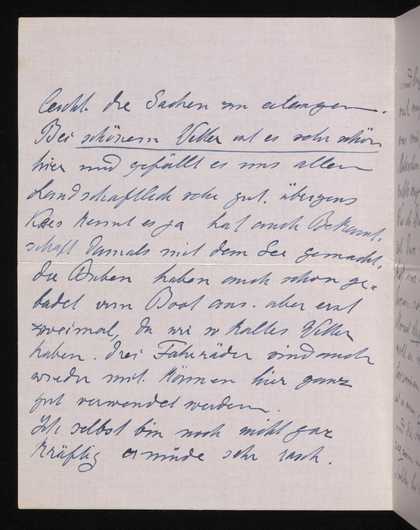 leicht die Sachen zu erlangen.
Bei schönem Wetter ist es sehr schön
hier und gefällt es uns allen
landschaftlich sehr gut. übrigens
kennt es ja hat auch Bekannt-
schaft damals mit dem See gemacht.
die Buben haben auch schon ge-
badet vom Boot aus. aber erst
zweimal, da wir so kaltes Wetter
haben. drei Fahrräder sind auch
wieder mit. können hier ganz
gut verwendet werden.
Ich selbst bin noch nicht gar
kräftig ermüde sehr rasch.